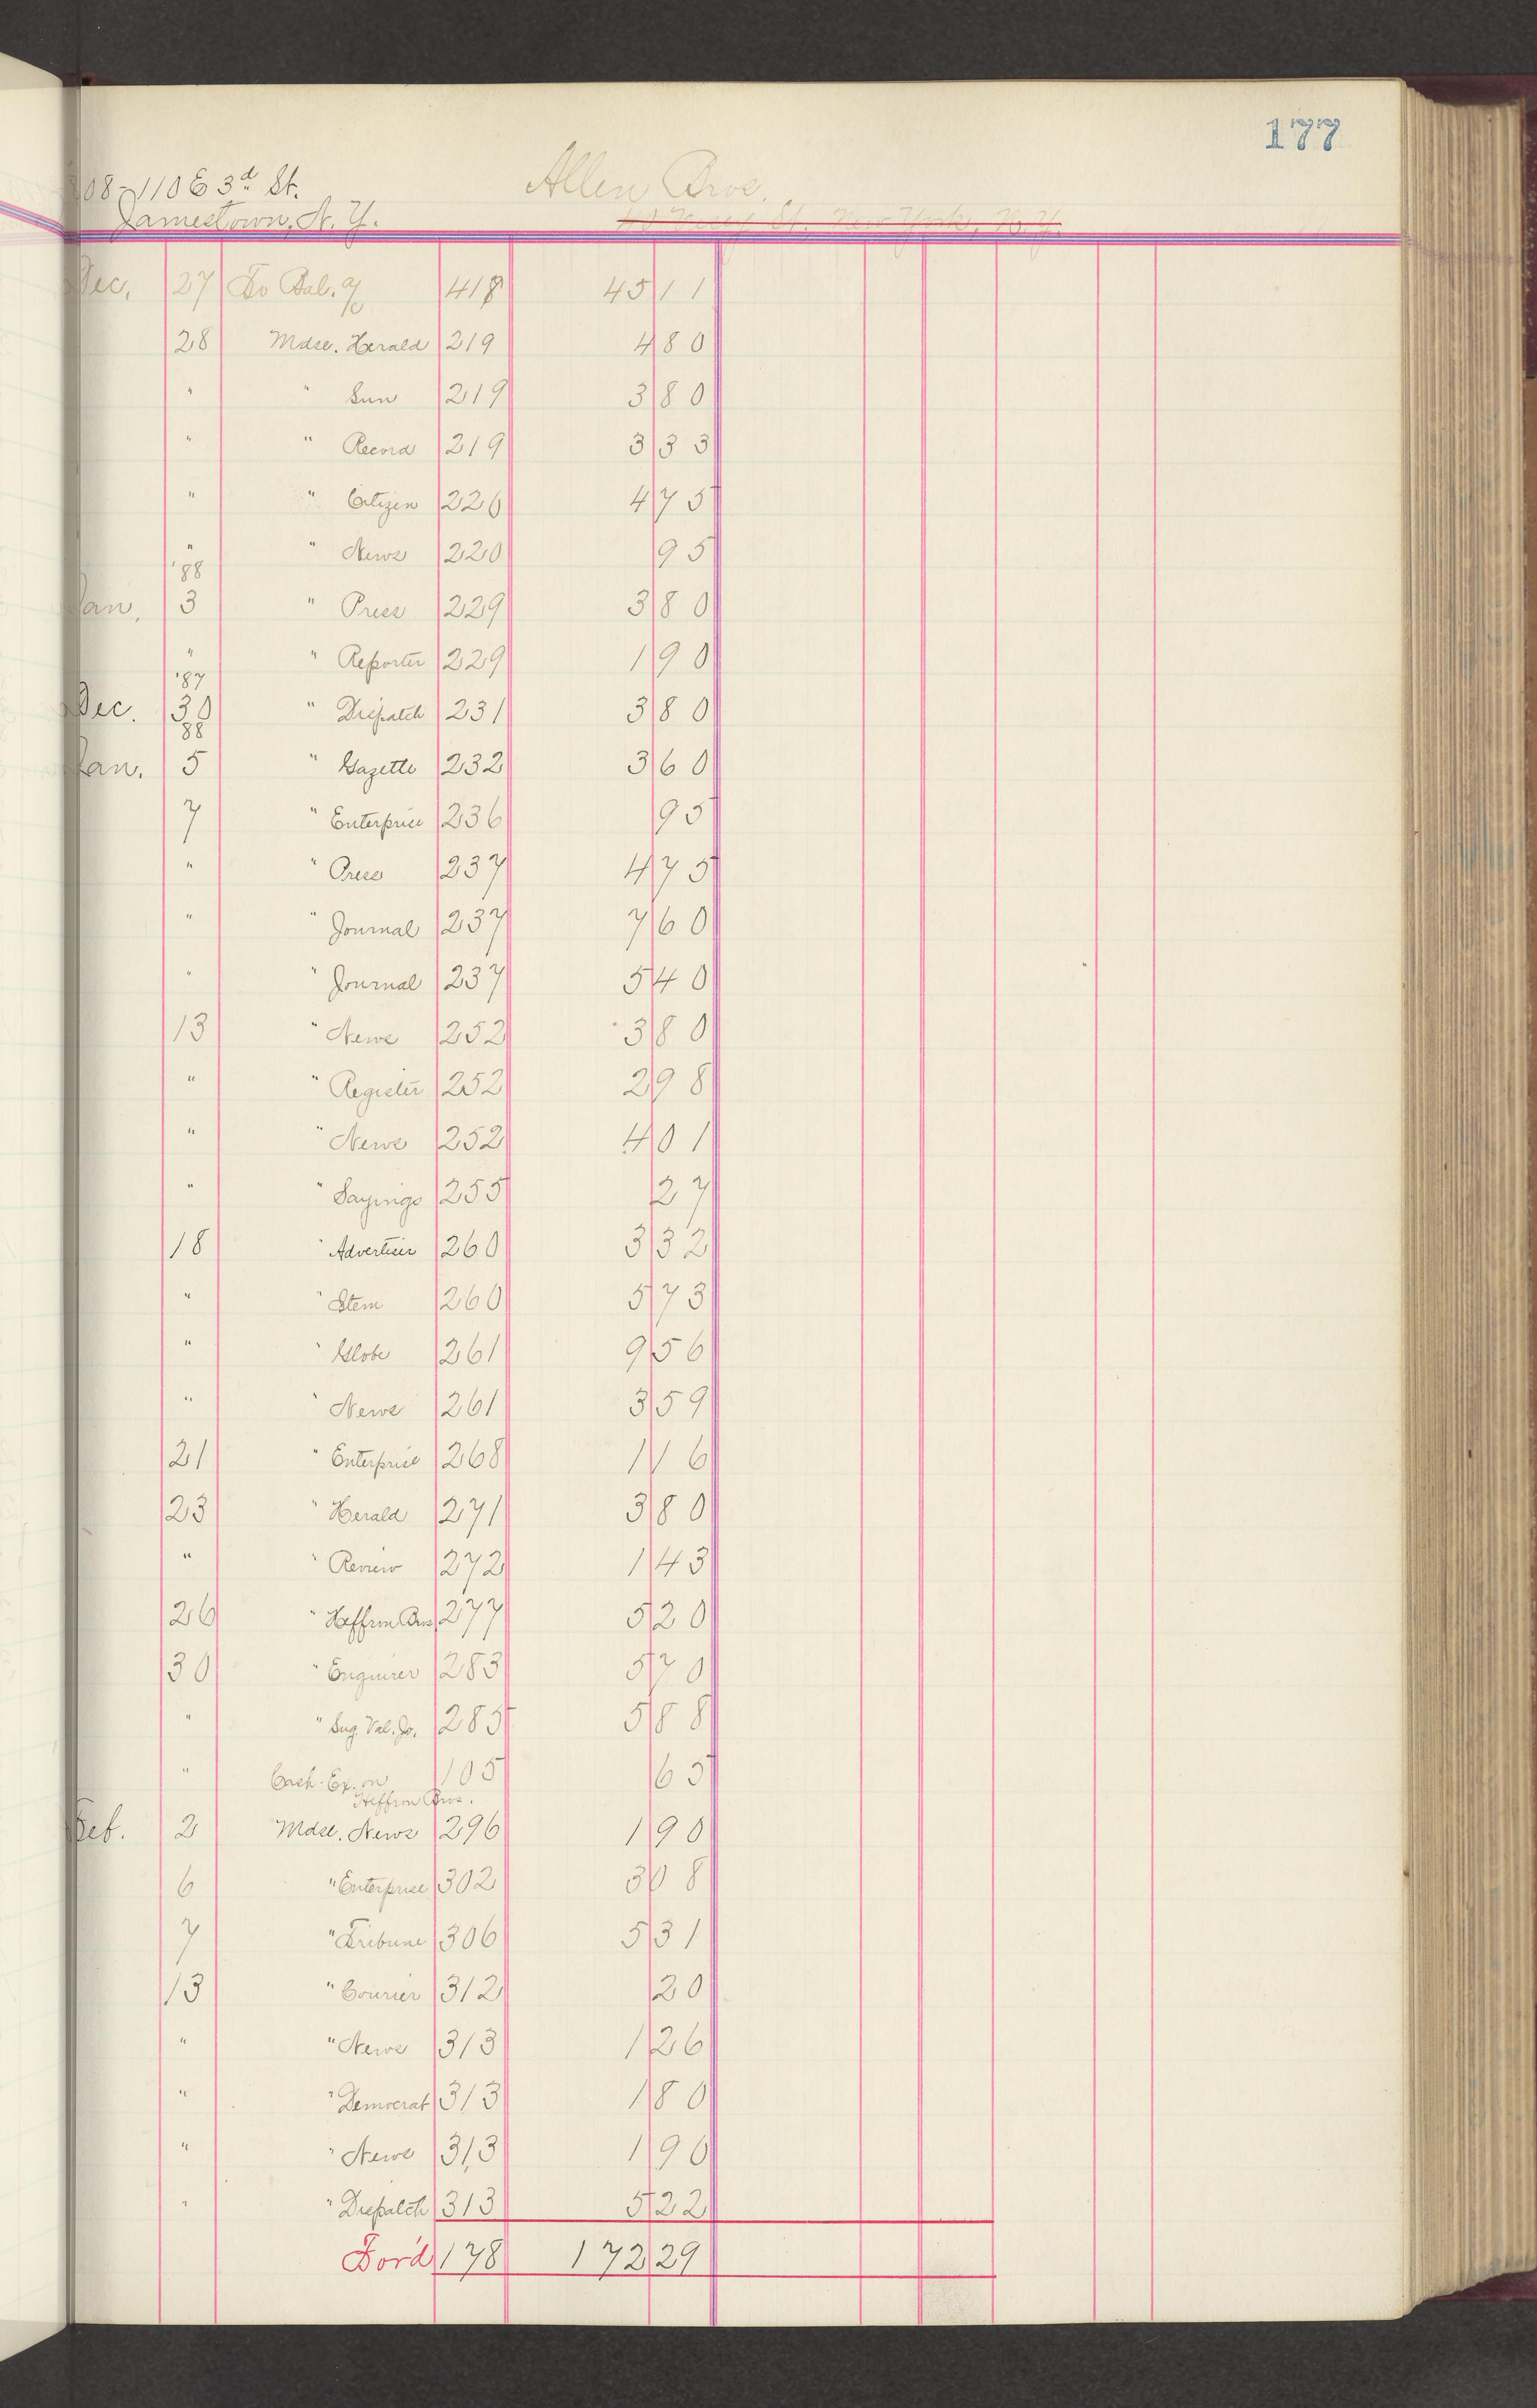 177
108-110 E 3d St. Allen Bros.
Jamestown, N. Y. St., New York, N.Y.
Dec. 27 To Bal. a/c 418 45 11
28 Mdse. Herald 219 4 80
" " Sun 219 3 80
" " Record 219 3 33
" " Citizen 220 4 75
" " News 220 95
'88
Jan. 3 " Press 229 3 80
" " Reporter 229 1 90
'87
Dec. 30 " Dispatch 231 3 80
88
Jan. 5 " Gazette 232 3 60
7 " Enterprise 236 95
" " Press 237 4 75
" " Journal 237 7 60
" " Journal 237 5 40
13 " News 252 3 80
" " Register 252 2 98
" " News 252 4 01
" " Sayings 255 27
18 " Advertiser 260 3 32
" " Stem 260 5 73
" " Globe 261 9 56
" " News 261 3 59
21 " Enterprise 268 1 16
23 " Herald 271 3 80
" " Review 272 1 43
26 " Heffron Bros 277 5 20
30 " Enquirer 283 5 70
" " Sug. Val. Jo. 285 5 88
" Cash-Ex. on 105 65
Heffron Bros.
Feb. 2 Mdse. News 296 1 90
6 " Enterprise 302 3 08
7 " Tribune 306 5 31
13 " Courier 312 20
" " News 313 1 26
" " Democrat 313 1 80
" " News 313 1 90
" " Dispatch 313 5 22
For'd 178 172 29